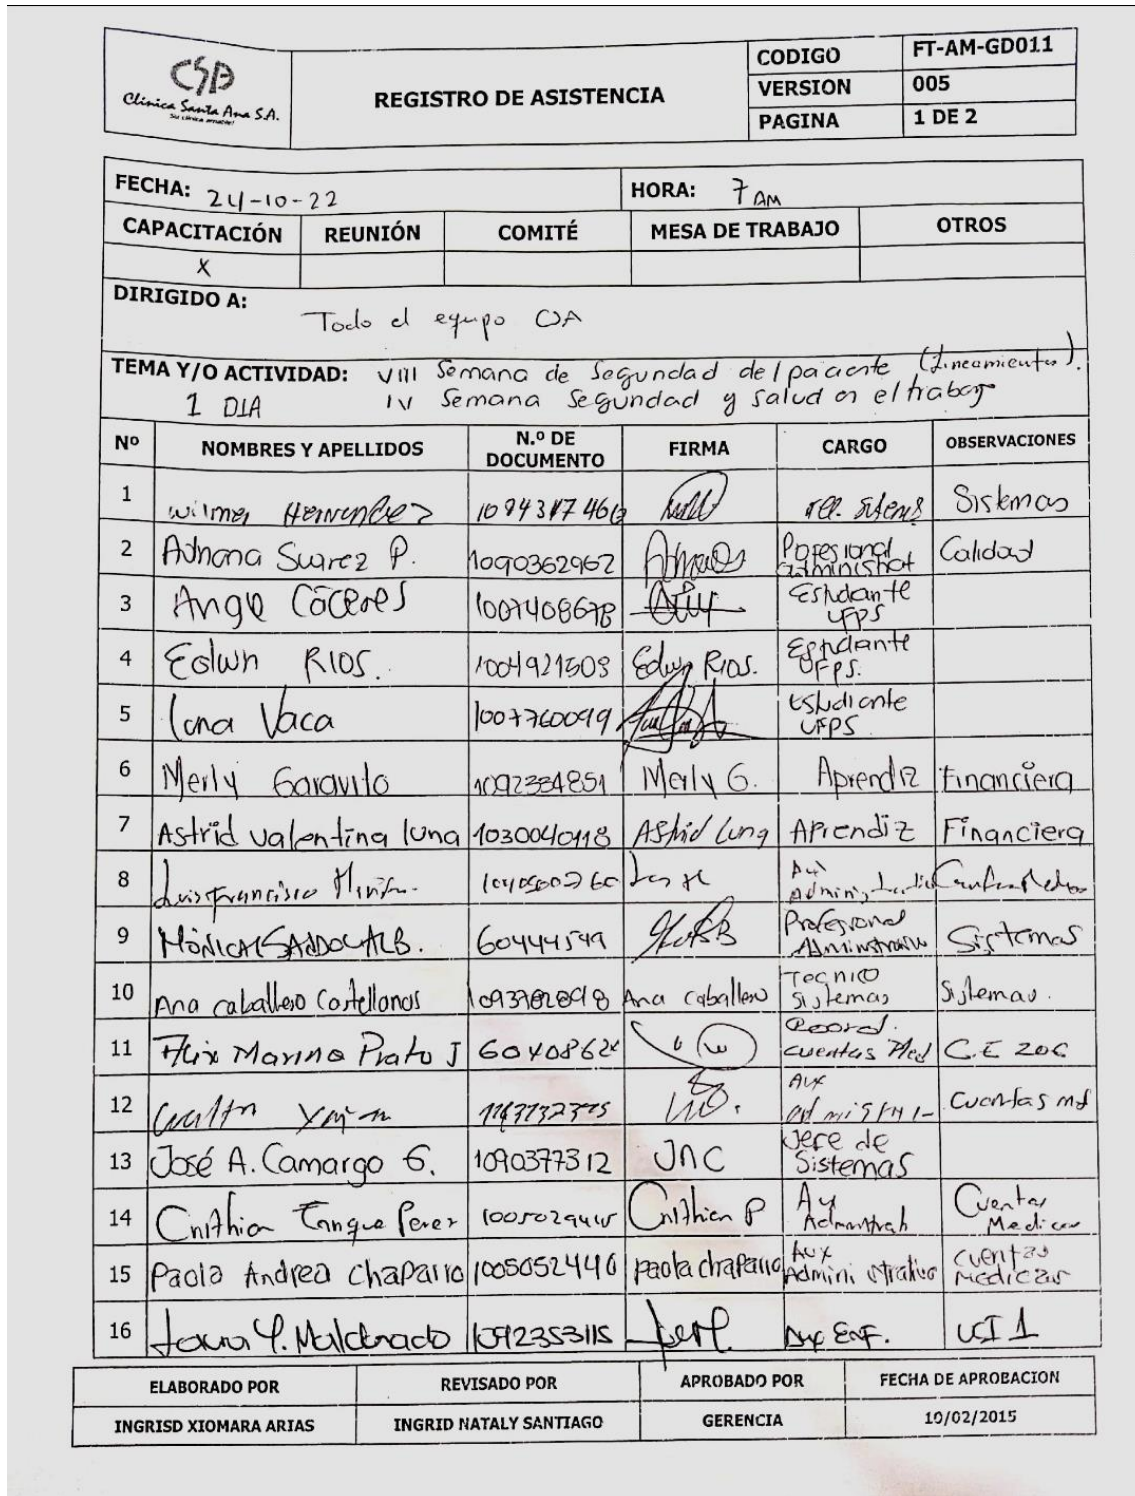 CSA
Clínica Santa Ana S.A.
REGISTRO DE ASISTENCIA
CODIGO FT-AM-GD011
VERSION 005
PAGINA 1 DE 2
FECHA: 24-10-22 HORA: 7 AM
CAPACITACIÓN REUNIÓN COMITÉ MESA DE TRABAJO OTROS
X
DIRIGIDO A:
Todo el equipo CSA
TEMA Y/O ACTIVIDAD: VIII Semana de Seguridad del paciente (Lineamientos).
1 DIA IV Semana Seguridad y salud en el trabajo
Nº NOMBRES Y APELLIDOS N.º DE DOCUMENTO FIRMA CARGO OBSERVACIONES
1 Wilmer Hernandez Sistemas
2 Adriana Suarez P. 1090362962 Profesional administrat Calidad
3 Angie Cáceres 1007408678 Estudiante UFPS
4 Edwin RIOS. 1004921503 Edwin Rios. Estudiante UFPS.
5 Vaca 1007760099 Estudiante UFPS
6 Merly Garavito 1092384851 Merly G. Aprendiz Financiera
7 Astrid Valentina luna 1030040118 Astrid luna Aprendiz Financiera
8 Luis Francisco Aux Administrativo
9 MÓNICA 60444549 Profesional Administrativo Sistemas
10 Ana caballero Castellanos Ana caballero Tecnico Sistemas Sistemas.
11 Marina Prato J Coord. cuentas Med
12 Aux Cuentas md
13 José A. Camargo G. 1090377312 JAC Jefe de Sistemas
14 Perez P Cuentas Medicas
15 Paola Andrea Chaparro 1005052440 paola chaparro Aux Administrativo Cuentas Medicas
16 Y. Maldonado 1092353115 Aux Enf. UCI 1
ELABORADO POR REVISADO POR APROBADO POR FECHA DE APROBACION
INGRISD XIOMARA ARIAS INGRID NATALY SANTIAGO GERENCIA 10/02/2015